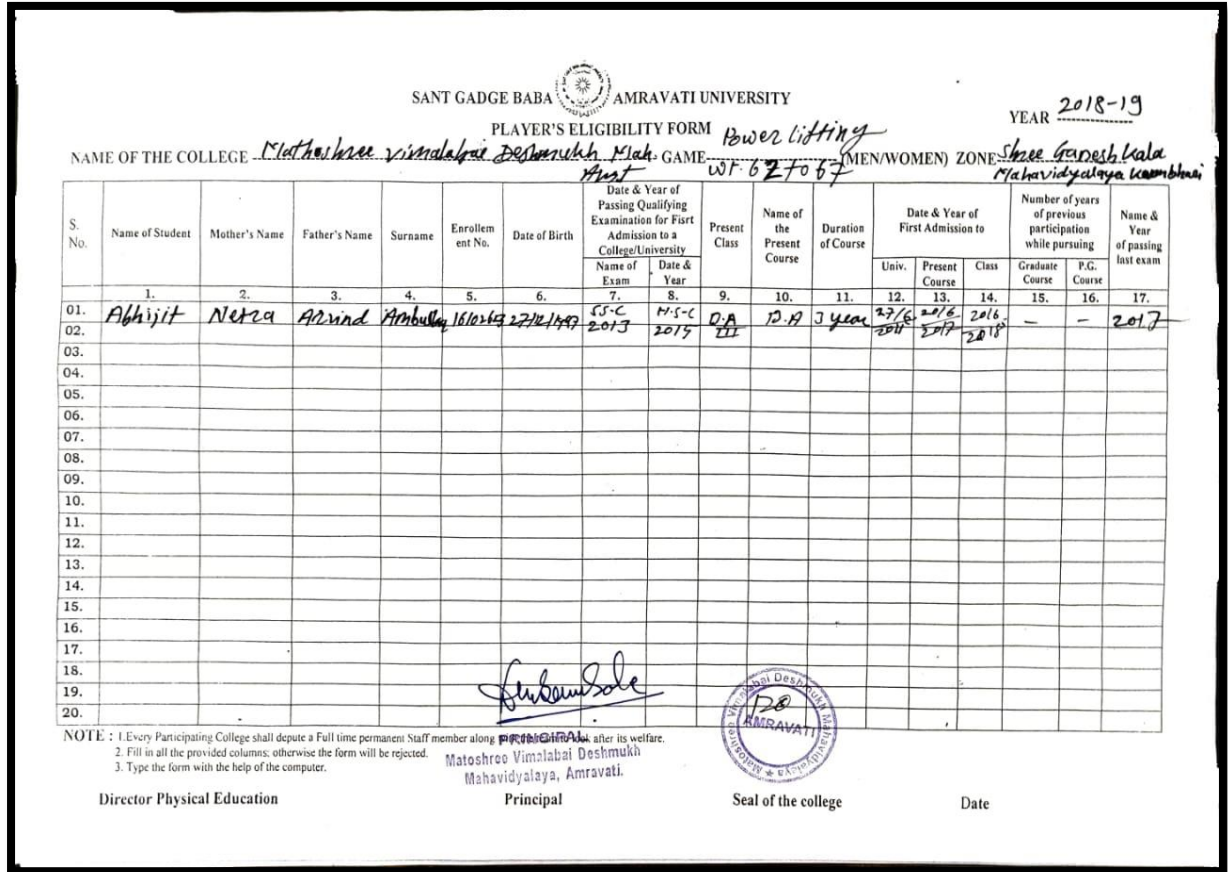 SANT GADGE BABA AMRAVATI UNIVERSITY
YEAR 2018-19
PLAYER'S ELIGIBILITY FORM
NAME OF THE COLLEGE Mathoshree Vimalabai Deshmukh Mah. Amt GAME Power Lifting Wt. 62 to 67 (MEN/WOMEN) ZONE Shree Ganesh Kala
Mahavidyalaya
S. No.
Name of Student
Mother's Name
Father's Name
Surname
Enrollem ent No.
Date of Birth
Date & Year of Passing Qualifying Examination for Fisrt Admission to a College/University
Name of Exam
Date & Year
Present Class
Name of the Present Course
Duration of Course
Date & Year of First Admission to
Univ.
Present Course
Class
Number of years of previous participation while pursuing
Graduate Course
P.G. Course
Name & Year of passing last exam
1. 2. 3. 4. 5. 6. 7. 8. 9. 10. 11. 12. 13. 14. 15. 16. 17.
01. Abhijit Netra Arvind S.S.C 2013 H.S.C B.A III B.A 3 year 27/6 2016 2017 2016 2018 – – 2017
02.
03.
04.
05.
06.
07.
08.
09.
10.
11.
12.
13.
14.
15.
16.
17.
18.
19.
20.
NOTE : 1.Every Participating College shall depute a Full time permanent Staff member along look after its welfare.
2. Fill in all the provided columns; otherwise the form will be rejected.
3. Type the form with the help of the computer.
PRINCIPAL
Matoshree Vimalabai Deshmukh
Mahavidyalaya, Amravati.
Matoshree Vimalabai Deshmukh Mahavidyalaya
AMRAVATI
Director Physical Education
Principal
Seal of the college
Date